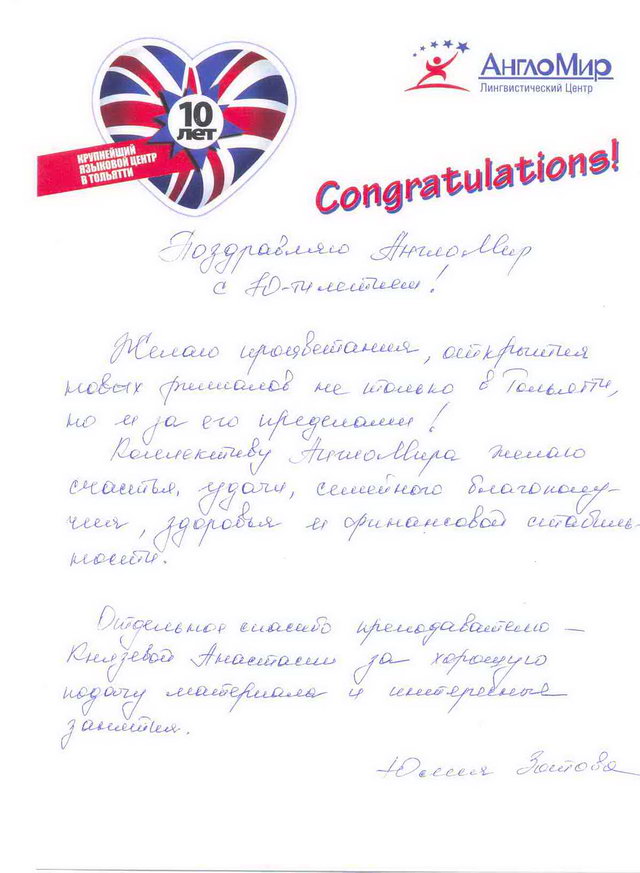 10
ЛЕТ
КРУПНЕЙШИЙ
ЯЗЫКОВОЙ ЦЕНТР
В ТОЛЬЯТТИ
АнглоМир
Лингвистический Центр
Congratulations!
Поздравляю АнглоМир
с 10-тилетием!
Желаю процветания, открытия
новых филиалов не только в Тольятти,
но и за его пределами!
Коллективу АнглоМира желаю
счастья, удачи, семейного благополу-
чия, здоровья и финансовой стабиль-
ности.
Отдельное спасибо преподавателю –
Князевой Анастасии за хорошую
подачу материала и интересные
занятия.
Юлия